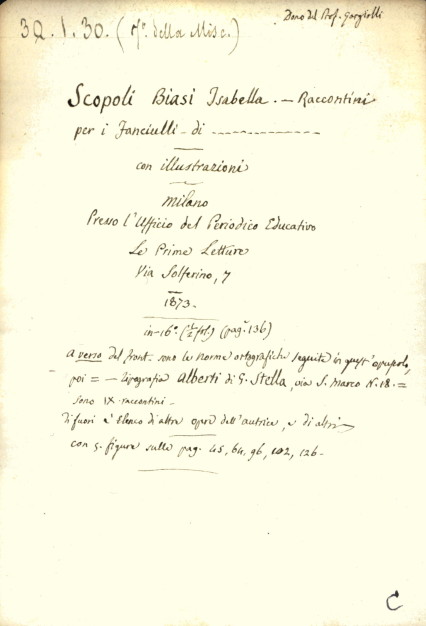 Dono del Prof. Gargiolli
39.1.30. (7º. della Misc.)
Scopoli Biasi Isabella. — Raccontini
per i Fanciulli - di -----------
con illustrazioni
Milano
Presso l'Ufficio del Periodico Educativo
Le Prime Letture
Via Solferino, 7
1873.
in-16º. (½ fol.) (pagª. 136)
A verso del front. sono le norme ortografiche seguite in quest'opuscolo,
poi = — Tipografia Alberti di G. Stella, via S. Marco N. 18. =
sono IX raccontini -
Di fuori è Elenco di altre opere dell'autrice, e di altri
con 5. figure sulle pag. 45, 64, 96, 102, 126 -
C